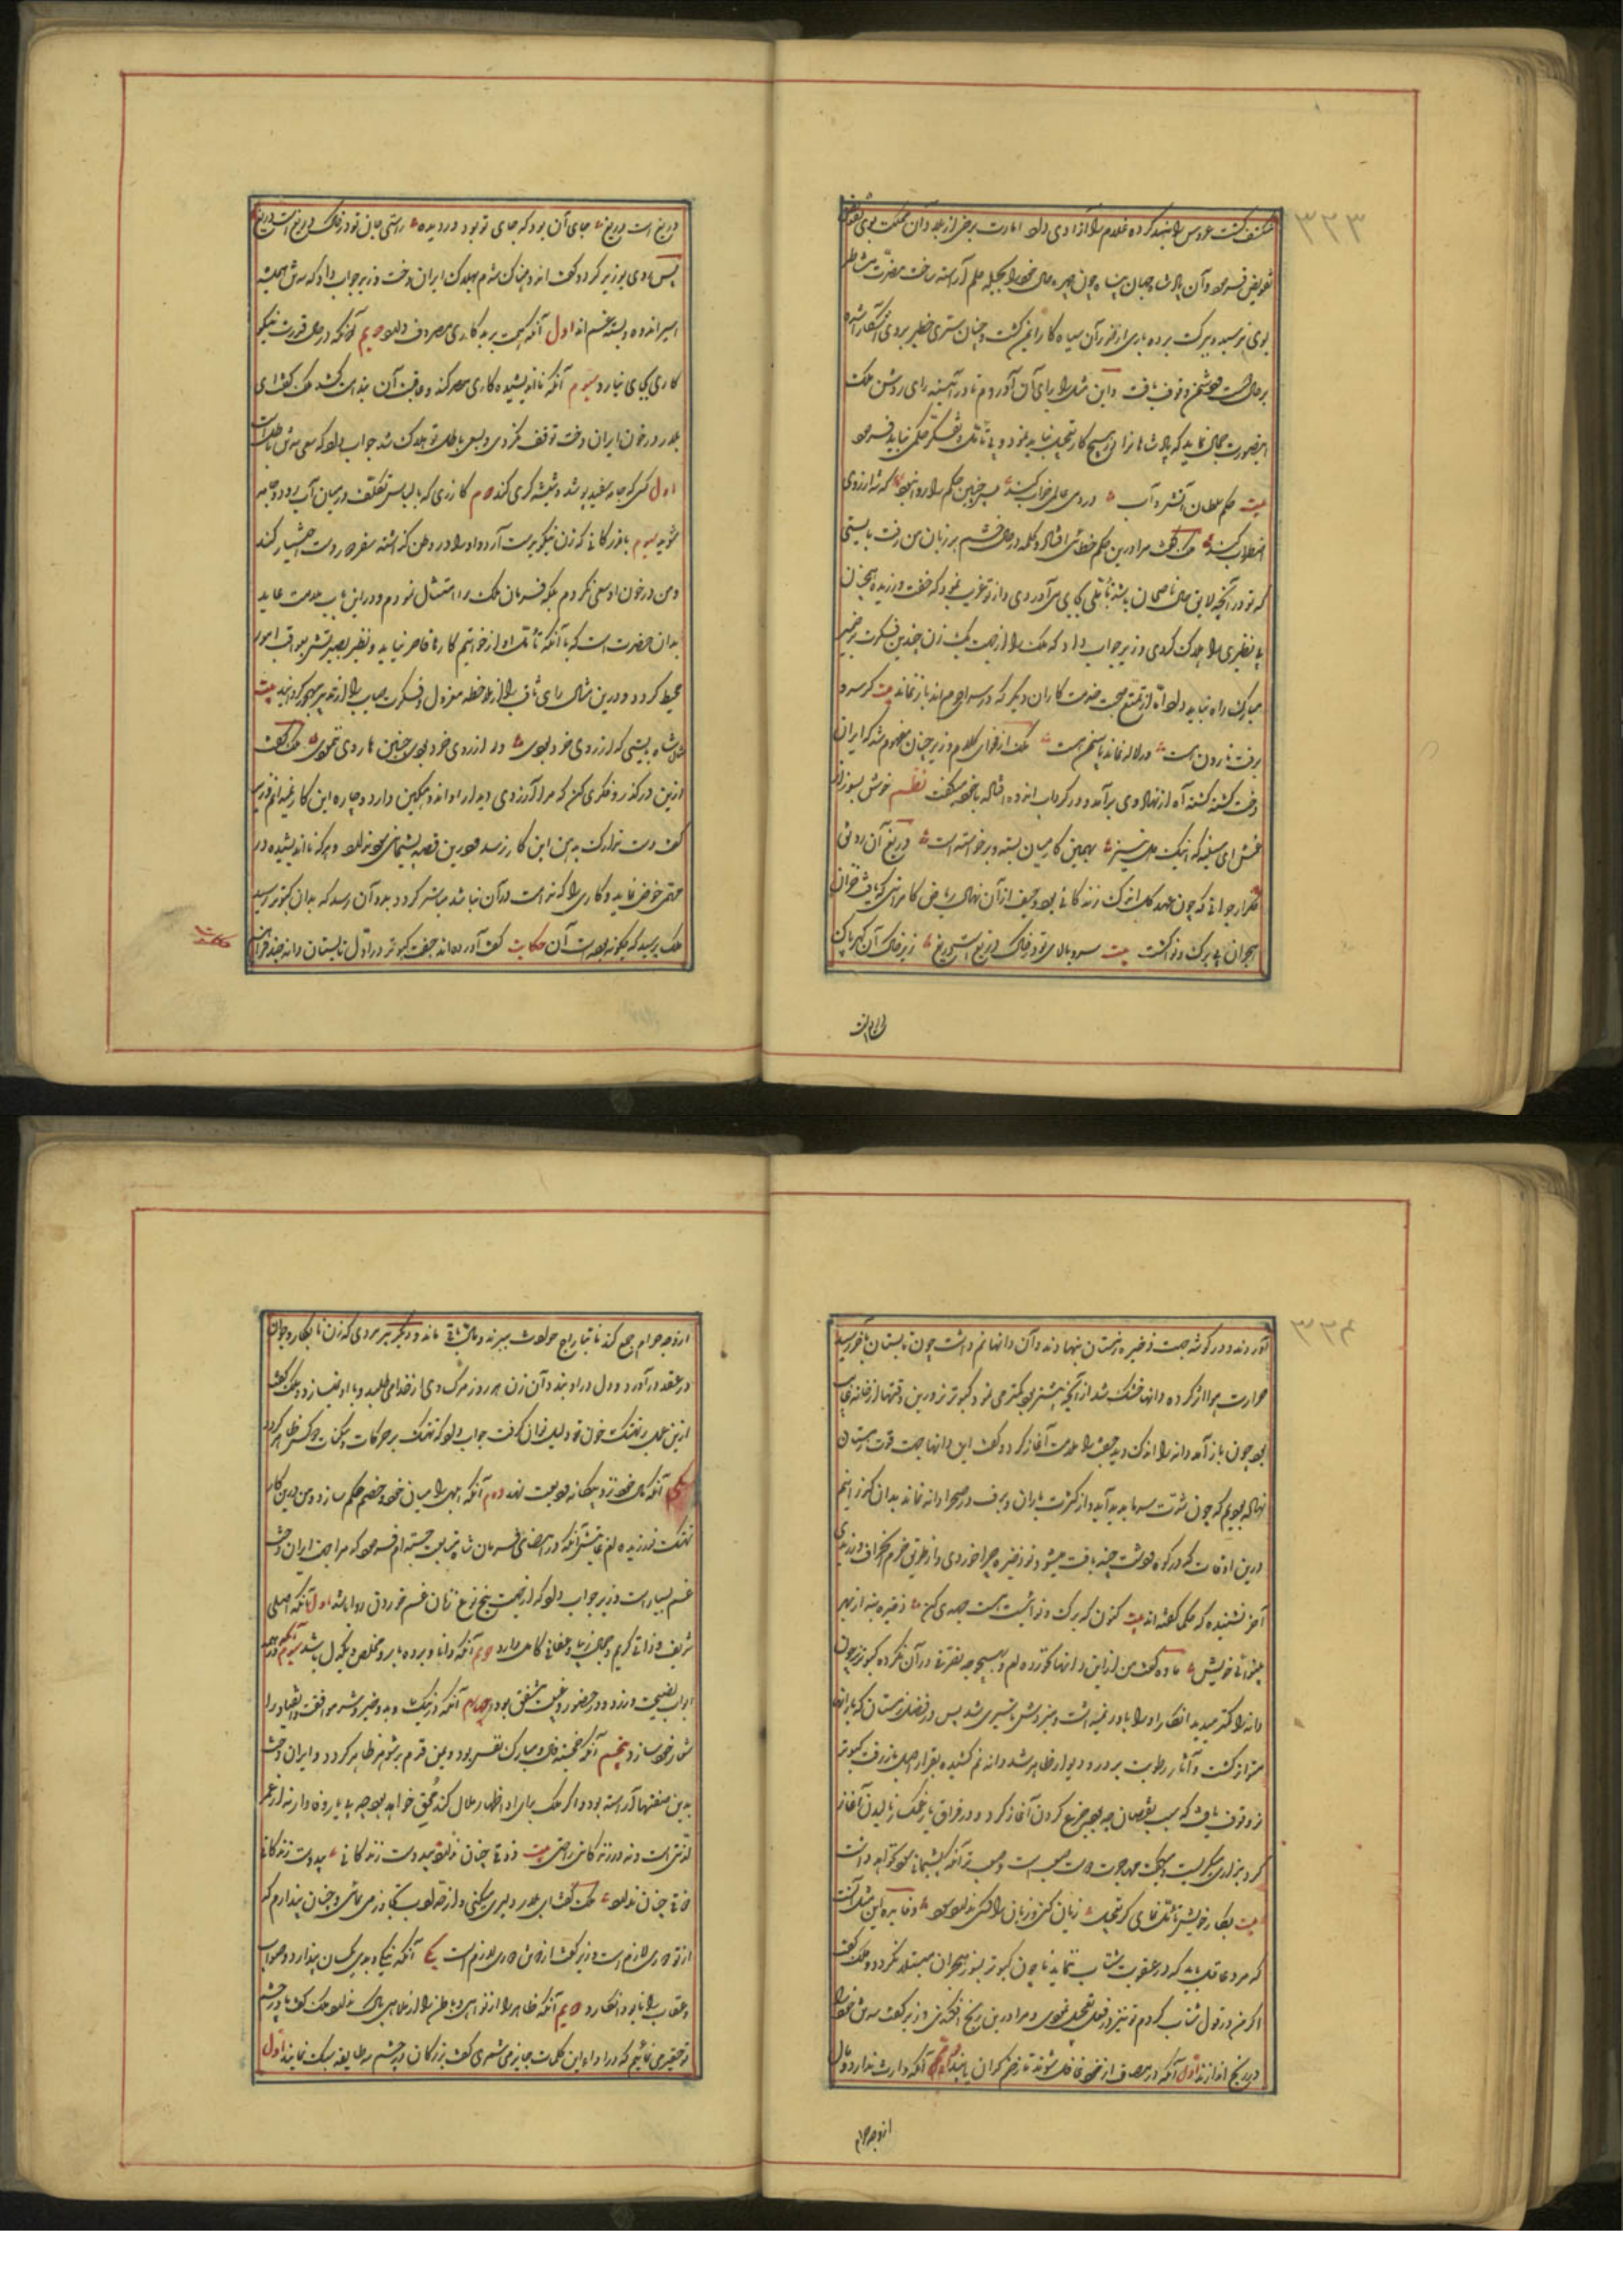 ۳۲۳
منکشف گشت عروس را بند کرده غلام را آزادی داد امارت برخی از بلاد آن مملکت بوی
تفویض فرمود و آن پادشاه جهان پناه چون چهره حال خود را بحیله حلم آراسته ساخت مضرت
بوی نرسید و ببرکت بردباری از آن سیاه کار ایمن گشت و چنان ستری خطیر بر وی آشکارا شده
بر حال وقوف یافت و این مثل را برای آن آوردم تا در آئینه رای روشن ملک
اینصورت جمال نماید که پادشاهانرا در هیچ کار تعجیل نباید نمود و بی تأمل و تفکر حکمی نباید فرمود
بیت حکم سلطان آتش و آب در دمی عالمی خراب کند چنین حکم را روا که نه از روی
اضطراب کند ملک گفت مرا درین حکم خطائی افتاد و کلمه در حال خشم بر زبان من رفت بایستی
که تو در آنچه لایق حال ناصحان باشد تأملی بجای می آوردی و از تو غریب نمود که خفت ورزیده اینچنان
بی نظیری را هلاک کردی وزیر جواب داد که ملک را از جهت یک زن چندین فکرت بر ضمیر
مبارک راه نباید داد تا از تمتع صحبت خدمتکاران دیگر که در سرای حرم اند باز نماند بیت گر سرو
برفت نارون هست ور لاله نماند یاسمن هست ملک از فحوای کلام وزیر چنان مفهوم شد که ایران
دخت کشته گشته آه از نهاد وی برآمد و در گرداب اندوه افتاده با خود میگفت نظم خوش بسوز از
غمش ای سینه که اینک دل نیز بهمین کار میان بسته و برخواسته است دریغ آن رونق
گلزار جوانی که چون عهد گل اندک زندگانی بود و حیف از آن نهال ریاض کامرانی که یافت خزان
هجران بی برگ و نوا گشت بیت سرو بالای تو در خاک دریغست دریغ زیر خاک آن گهر پاک
دریغ است دریغ جای آن بود که جای تو بود در دیده راستی جای تو در خاک دریغ است دریغ
پس روی بوزیر کرد و گفت اندوهناک شدم بهلاک ایران دخت وزیر جواب داد که سه تن همیشه
اسیر اندوه و بسته غم اند اول آنکه همت بر بدکاری مصروف دارد دویم آنکه در حال قدرت نیکو
کاری بجای نیارد سیوم آنکه نااندیشیده کاری کند و عاقبت آن بندامت کشد ملک گفت ای
بلار در خون ایران دخت توقف نکردی و بسعی باطل تو هلاک شد جواب داد که سعی سه تن باطل است
اول کسی که جامه سفید پوشد و شیشه گری کند دوم گازری که با لباس تکلف در میان آب رود و جامه
شوید سیوم بازرگانی که زن نیکو بدست آرد و او را در وطن گذاشته سفر دور دست اختیار کند
و من در خون او سعی نکردم بلکه فرمان ملک را امتثال نمودم و درین باب ملامت عاید
بدان حضرت است که با آنکه تأمل او از خواتیم کارها قاصر نیاید و نظر بصیرتش بعواقب امور
محیط گردد و درین مثال رای ثاقب را از ملاحظه معزول و فکرت صایب را از تدبیر مهجور گردانید بیت
شاه بیتی که از روی خرد بودی ور از روی خرد بودی چنین ها روی ننمودی ملک گفت
ازین درگذر و فکری کن که مرا آرزوی دیدار او اندوهگین دارد و چاره این کار نمیدانم وزیر
گفت دست تدارک بدامن این کار نرسد و درین قصه پشیمانی سود ندارد و هر که نااندیشیده در
مهمی خوض نماید و کاری را که ندامت در آن نباشد مباشر گردد بدو آن رسد که بدان کبوتر رسید
ملک پرسید که چگونه بوده است آن حکایت گفت آورده اند جفت کبوتر در اول تابستان دانه چند فراهم
حکایت
۳۲۴
آوردند و در گوشه جهت ذخیره زمستان بنهادند و آن دانها نم داشت چون تابستان بآخر رسید
حرارت هوا اثر کرده دانها خشک شد از آنچه پیشتر بود کمتر می نمود و کبوتر نر درین وقتها از خانه غایب
بود چون باز آمد دانه را اندک دید جفت را ملامت آغاز کرد و گفت این دانها جهت قوت زمستان
نهاده بودیم که چون شدت سرما پدید آید و از کثرت باران و برف در صحرا دانه نماند بدان گذرانیم
درین اوقات که در کوه و دشت چینه یافت میشود تو ذخیره چرا خوردی و از طریق حزم انحراف ورزیدی
آخر نشنیده که حکما گفته اند بیت کنون که برگ و نوائیت هست جهدی کن ذخیره بنه از بهر
بینوائی خویش ماده گفت من ازین دانها نخورده ام و بهیچوجه تصرفی در آن نکرده کبوتر نر چون
دانه را کمتر میدید انکار او را باور نمیداشت و میزدش تا سپری شد پس در فصل زمستان که بارانها
متواتر گشت و آثار رطوبت بر در و دیوار ظاهر شد دانه نم کشیده بقرار اصل باز رفت کبوتر
نر وقوف یافت که سبب نقصان چه بود جزع کردن آغاز کرد و در فراق یار غمگسار نالیدن آغاز
کرد بزاری میگریست و میگفت مهاجرت دوست صعب است و صعب تر آنکه پشیمانی سود نخواهد داشت
بیت بکار خویش تأمل نمای که تعجیل زیان کنی و زیان را کسی ندارد سود و فایده این مثل آنست
که مرد عاقل باید که در عقوبت شتاب ننماید تا چون کبوتر بسوز هجران مبتلا نگردد و ملک گفت
اگر من در قول شتاب کردم تو نیز در فعل تعجیل نمودی و مرا در این رنج افکندی وزیر گفت سه تن خود را
در رنج اندازند اول آنکه در مصاف از خود غافل شود تا زخم گران یابد دوم آنکه وارث ندارد و مال
از وجه حرام
از وجه حرام جمع کند تا بتاراج حوادث ببرند و وبال باقی ماند و دیگر پیر مردی که زن نابکار و جوان
در عقد درآورد و دل در او بندد و آن زن هر روز مرگ وی از خدای طلبد و با او نسازد و ملک گفت
ازین عمل بر تهتک خون تو دلیل توان گرفت جواب داد که تهتک بر حرکات و سکنات دو کس ظاهر گردد
یکی آنکه مال خود نزد بیگانه ودیعت نهد دوم آنکه ابلهی را میان خود و خصم حکم سازد و من درین کار
تهتک نورزیده ام غایتش آنکه در امضای فرمان شتاب جسته ام فرمود که مرا جهت ایران دخت
غم بسیار است وزیر جواب داد که از جهت پنج نوع زنان غم خوردن روا باشد اول آنکه اصلی
شریف و ذاتی کریم و جمال زیبا و عفافی کامل دارد دویم آنکه دانا و بردبار و مخلص و یکدل باشد سیوم آنکه در همه
ابواب نصیحت ورزد و در حضور و غیبت متفق بود چهارم آنکه در نیک و بد و خیر و شر موافقت و انقیاد را
شعار خود سازد پنجم آنکه خجسته فال و مبارک نفس بود و یمن قدم بر شوهر ظاهر گردد و ایران دخت
بدین صفتها آراسته بود و اگر ملک برای او اظهار ملال کند محق خواهد بود چه بی یار وفادار نه از عمر
لذتی است و نه در زندگانی راحتی بیت ذوقی چنان ندارد بیدوست زندگانی بیدوست زندگانی
ذوقی چنان ندارد ملک گفت ای بلار دلیری میکنی و از حد ادب تجاوز می نمائی و چنان پندارم که
از تو دوری لازم است وزیر گفت از دو تن دوری لازم است یکی آنکه نیکی و بدی یکسان پندارد و ثواب
و عقاب را نابود انگارد دویم آنکه ظاهر را از مناهی و باطن را از ملاهی پاک ندارد ملک گفت ما در چشم
تو حقیر می نمائیم که در اداء این کلمات جایز می شمری گفت بزرگان در چشم سه طایفه سبک نمایند اول